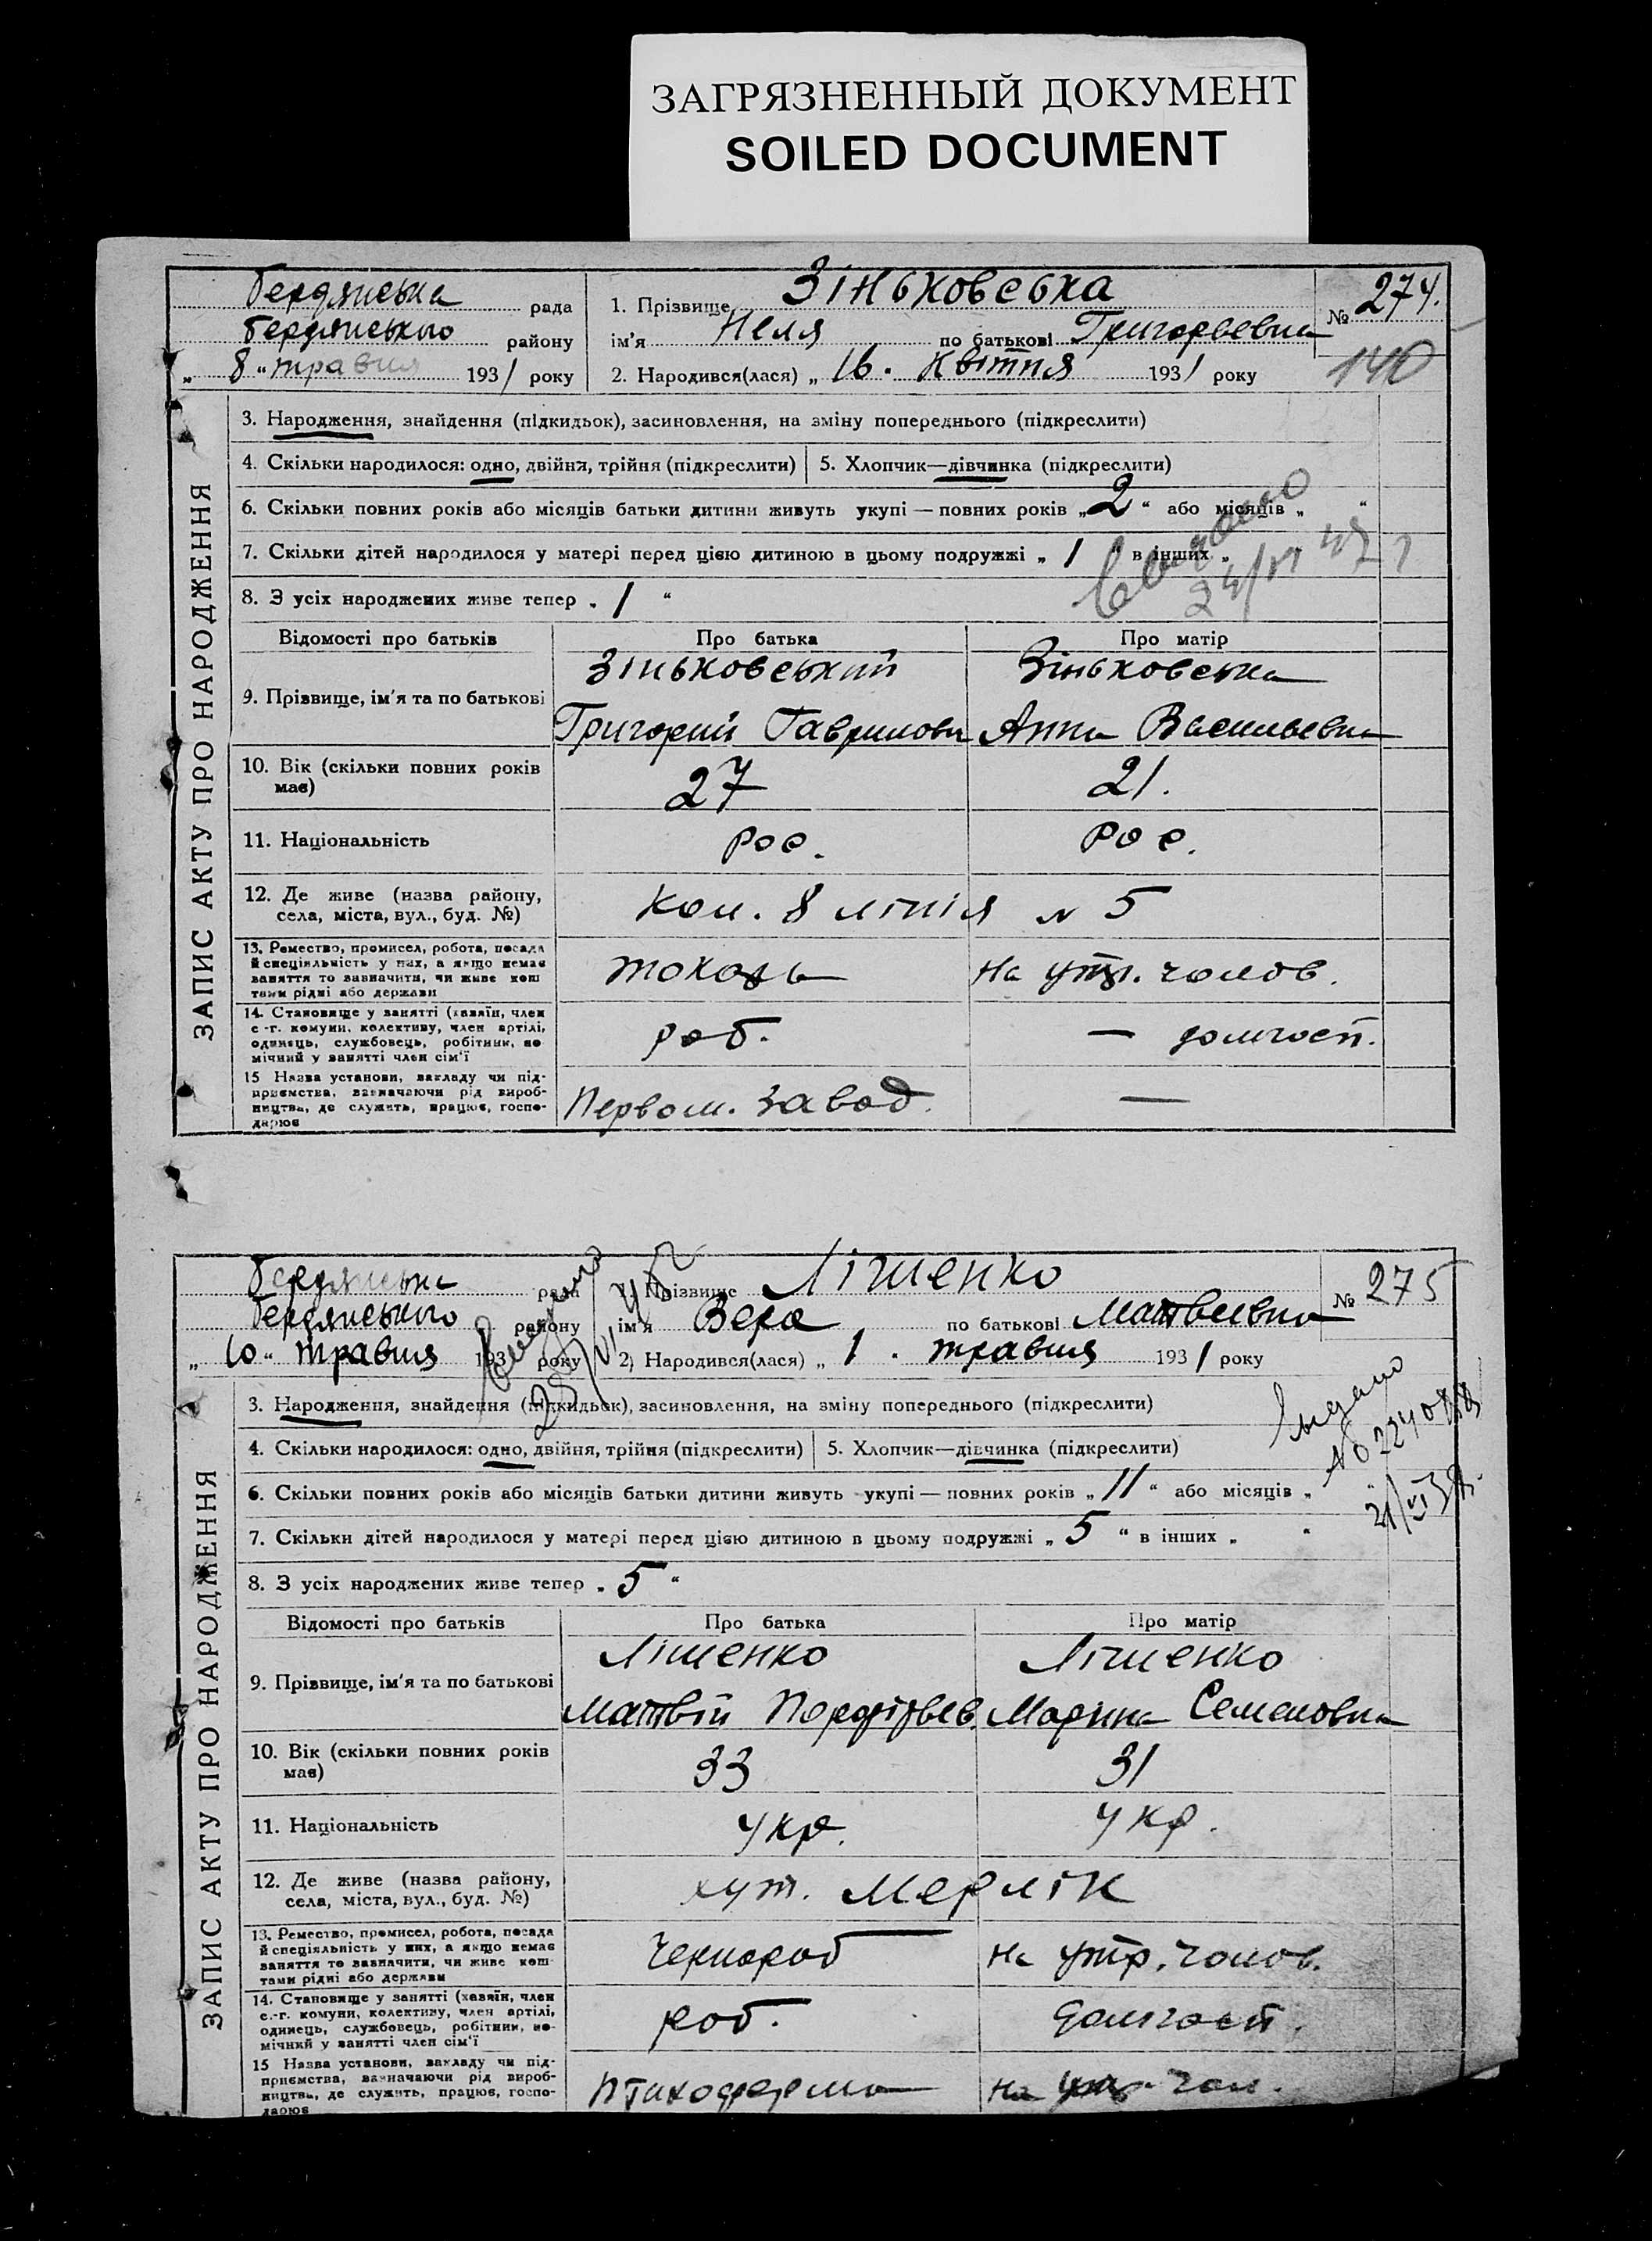 ЗАГРЯЗНЕННЫЙ ДОКУМЕНТ
SOILED DOCUMENT
Бердянська рада
Бердянського району
„ 8 “ травня 1931 року
1. Прізвище Зіньковська
ім'я Неля по батькові Григорьевна
2. Народився(лася) „ 16. квітня 1931 року
№ 274.
140
ЗАПИС АКТУ ПРО НАРОДЖЕННЯ
3. Народження, знайдення (підкидьок), засиновлення, на зміну попереднього (підкреслити)
4. Скільки народилося: одно, двійня, трійня (підкреслити) 5. Хлопчик—дівчинка (підкреслити)
6. Скільки повних років або місяців батьки дитини живуть укупі — повних років „ 2 “ або місяців „ “
7. Скільки дітей народилося у матері перед цією дитиною в цьому подружжі „ 1 “ в інших „
8. З усіх народжених живе тепер „ 1 “
Відомості про батьків Про батька Про матір
9. Прізвище, ім'я та по батькові
Зіньковський Зіньковська
Григорий Гаврилович Анна Васильевна
10. Вік (скільки повних років має) 27 21.
11. Національність рос. рос.
12. Де живе (назва району,
села, міста, вул., буд. №)
Кол. 8 лінія № 5
13. Ремество, промисел, робота, посада
й спеціяльність у них, а якщо немає
заняття то зазначити, чи живе кош
тами рідні або держави
токарь на утр. чолов.
14. Становище у занятті (хазяїн, член
с.-г. комуни, колективу, член артілі,
одинець, службовець, робітник, по
мічний у занятті член сім'ї
роб. — домгосп.
15 Назва установи, закладу чи під-
приємства, зазначаючи рід вироб-
ництва, де служить, працює, госпо-
дарює
Первом. завод. —
Бердянська рада
Бердянського району
„ 10 “ травня 193 року
1. Прізвище Лішенко
ім'я Вера по батькові Матвеевна
2) Народився(лася) „ 1 . травня 1931 року
№ 275
Выдано
ЗАПИС АКТУ ПРО НАРОДЖЕННЯ
3. Народження, знайдення (підкидьок), засиновлення, на зміну попереднього (підкреслити)
4. Скільки народилося: одно, двійня, трійня (підкреслити) 5. Хлопчик—дівчинка (підкреслити)
6. Скільки повних років або місяців батьки дитини живуть укупі — повних років „ 11 “ або місяців „
7. Скільки дітей народилося у матері перед цією дитиною в цьому подружжі „ 5 “ в інших „ “
8. З усіх народжених живе тепер „ 5 “
Відомості про батьків Про батька Про матір
9. Прізвище, ім'я та по батькові
Лішенко Лішенко
Матвій Порфірьев. Марина Семеновна
10. Вік (скільки повних років має) 33 31
11. Національність укр. укр.
12. Де живе (назва району,
села, міста, вул., буд. №)
хут. Мерлік
13. Ремество, промисел, робота, посада
й спеціяльність у них, а якщо немає
заняття то зазначити, чи живе кош
тами рідні або держави
Чернороб на утр. чолов.
14. Становище у занятті (хазяїн, член
с.-г. комуни, колективу, член артілі,
одинець, службовець, робітник, по-
мічний у занятті член сім'ї
роб. домгосп.
15 Назва установи, закладу чи під-
приємства, зазначаючи рід вироб-
ництва, де служить, працює, госпо-
дарює
птахоферма на утр. чол.